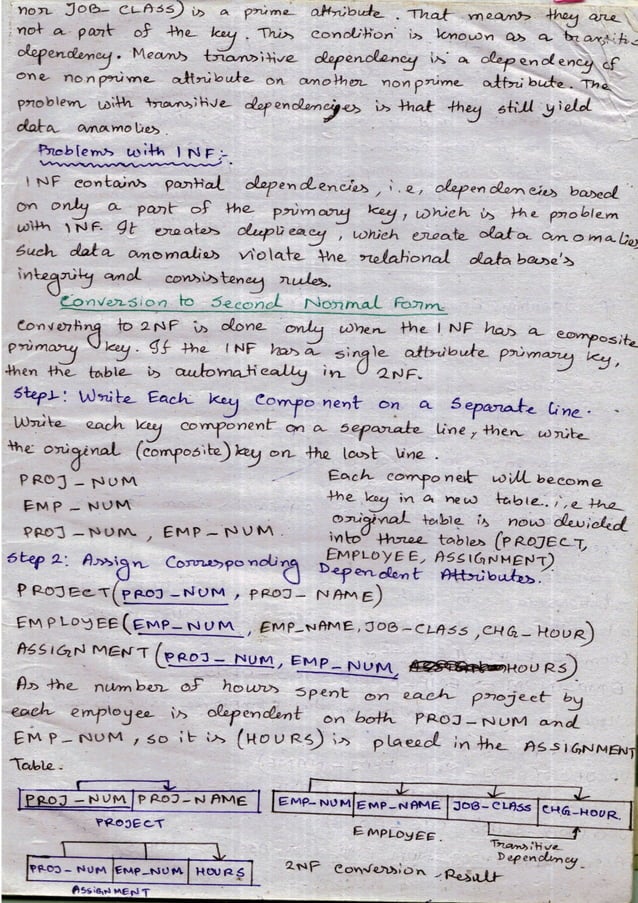 nor JOB- CLASS) is a prime attribute. That means they are
not a part of the key. This condition is known as a
dependency. Means transitive dependency is a dependency of
one nonprime attribute on another nonprime attribute. The
problem with transitive dependencies is that they still yield
data anamolies.
Problems with 1NF:-
1NF contains partial dependencies, i.e, dependencies based
on only a part of the primary key, which is the problem
with 1NF. It creates duplicacy, which create data anomalies
Such data anomalies violate the relational data base's
integrity and consistency rules.
Conversion to Second Normal Form
Converting to 2NF is done only when the 1NF has a composite
primary key. If the 1NF has a single attribute primary ky,
then the table is automatically in 2NF.
Step1: Write Each key Component on a Separate line.
Write each key component on a separate line, then write
the original (composite) key on the last line.
PROJ-NUM
EMP-NUM
PROJ-NUM, EMP-NUM.
Each componet will become
the key in a new table. i,e the
original table is now devided
into three tables (PROJECT,
EMPLOYEE, ASSIGNMENT)
Step 2: Assign Corresponding Dependent Attributes.
PROJECT(PROJ-NUM, PROJ-NAME)
EMPLOYEE(EMP-NUM, EMP_NAME, JOB-CLASS, CHG-HOUR)
ASSIGNMENT (PROJ-NUM, EMP-NUM, HOURS)
As the number of hours spent on each project by
each employee is dependent on both PROJ-NUM and
EMP-NUM, so it is (HOURS) is placed in the ASSIGNMENT
Table.
PROJ-NUM PROJ-NAME
PROJECT
EMP-NUM EMP-NAME JOB-CLASS CHG-HOUR.
EMPLOYEE.
Transitive
Dependency.
PROJ-NUM EMP-NUM HOURS
ASSIGNMENT
2NF conversion-Result